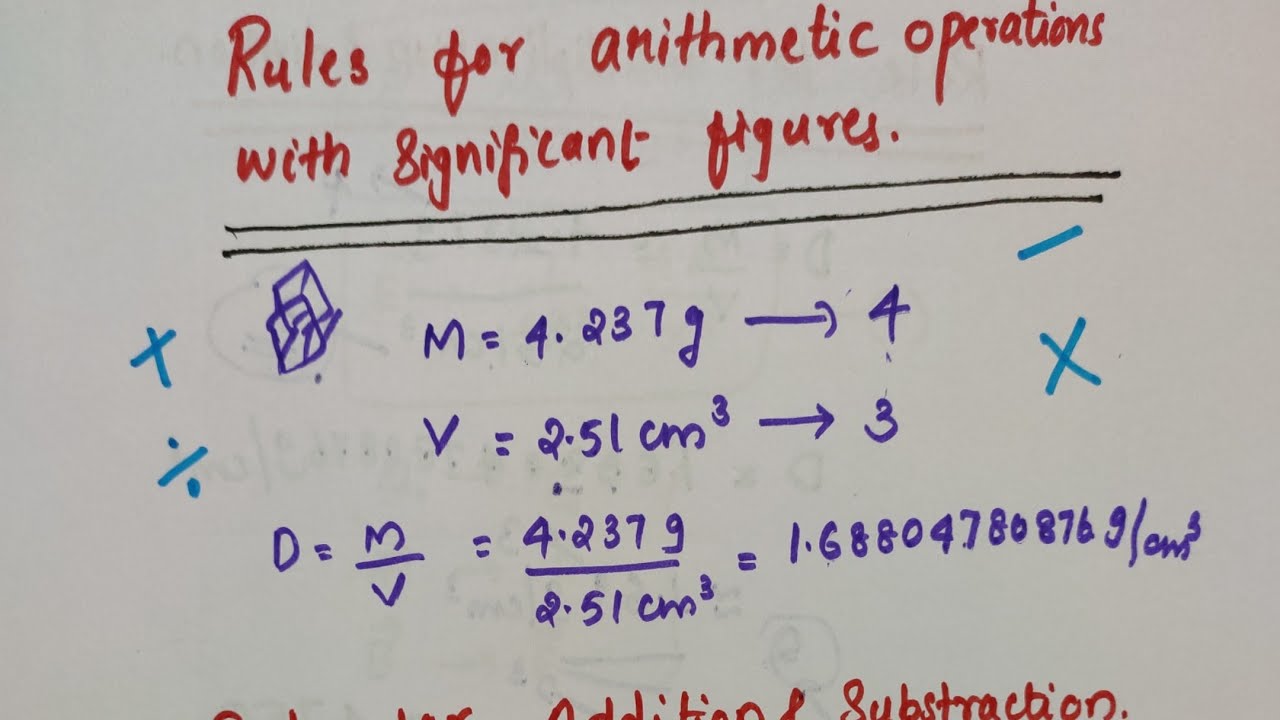 Rules for arithmetic operations
with Significant figures.
−
+
M = 4.237g → 4
×
V = 2.51 cm³ → 3
÷
D = M/V = 4.237g/2.51cm³ = 1.68804780876 g/cm³
Addition & Substraction.